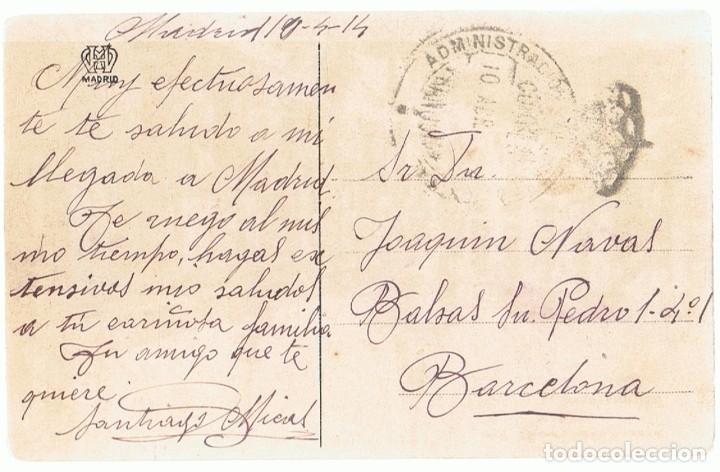 Madrid 10-4-14
MADRID
Muy efectuosamen
te te saludo a mi
llegada a Madrid.
Te ruego al mis
mo tiempo, hagas ex
tensivos mis saludos
a tu cariñosa familia
Tu amigo que te
quiere.
Santiago
ADMINISTRACIÓN
10 ABR
Sr Dn.
Joaquin Navas
Balsas Sn. Pedro 1-4º1
Barcelona
todocoleccion.net